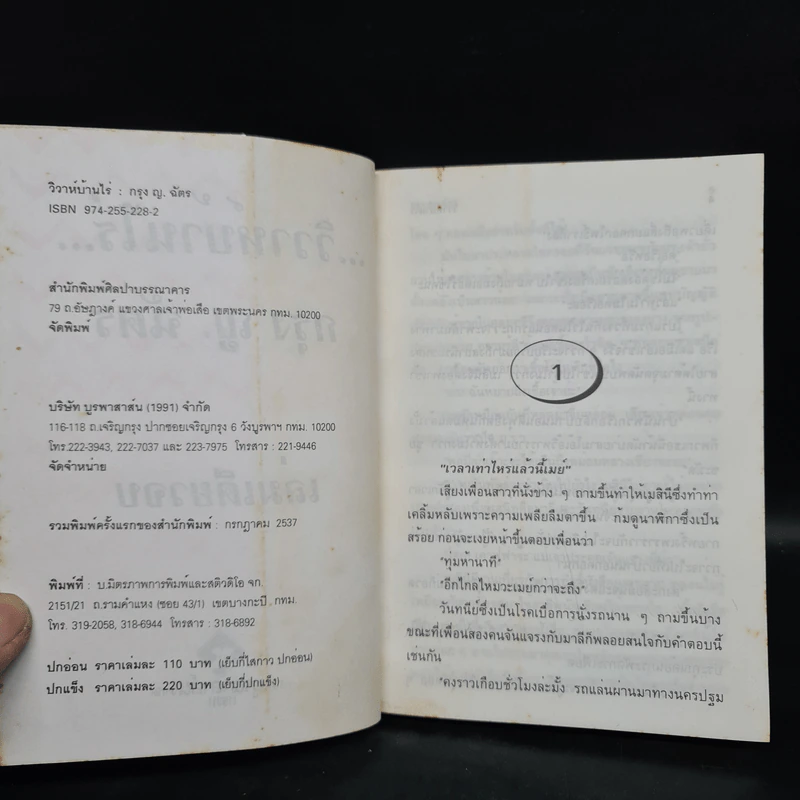 วิวาห์บ้านไร่ : กรุง ญ. ฉัตร
ISBN 974-255-228-2
สำนักพิมพ์ศิลปาบรรณาคาร
79 ถ.อัษฎางค์ แขวงศาลเจ้าพ่อเสือ เขตพระนคร กทม. 10200
จัดพิมพ์
บริษัท บูรพาสาส์น (1991) จำกัด
116-118 ถ.เจริญกรุง ปากซอยเจริญกรุง 6 วังบูรพาฯ กทม. 10200
โทร.222-3943, 222-7037 และ 223-7975 โทรสาร : 221-9446
จัดจำหน่าย
รวมพิมพ์ครั้งแรกของสำนักพิมพ์ : กรกฎาคม 2537
พิมพ์ที่ : บ.มิตรภาพการพิมพ์และสติวดิโอ จก.
2151/21 ถ.รามคำแหง (ซอย 43/1) เขตบางกะปิ กทม.
โทร. 319-2058, 318-6944 โทรสาร : 318-6892
ปกอ่อน ราคาเล่มละ 110 บาท (เย็บกี่ไสกาว ปกอ่อน)
ปกแข็ง ราคาเล่มละ 220 บาท (เย็บกี่ปกแข็ง)
1
"เวลาเท่าไหร่แล้วนี้เมย์"
เสียงเพื่อนสาวที่นั่งข้าง ๆ ถามขึ้นทำให้เมสินีซึ่งทำท่า
เคลิ้มหลับเพราะความเพลียลืมตาขึ้น ก้มดูนาฬิกาซึ่งเป็น
สร้อย ก่อนจะเงยหน้าขึ้นตอบเพื่อนว่า
"ทุ่มห้านาที"
"อีกไกลไหมวะเมย์กว่าจะถึง"
วันทนีย์ซึ่งเป็นโรคเบื่อการนั่งรถนาน ๆ ถามขึ้นบ้าง
ขณะที่เพื่อนสองคนจันแจงกับมาลีก็พลอยสนใจกับคำตอบนี้
เช่นกัน
"คงราวเกือบชั่วโมงละมั้ง รถแล่นผ่านมาทางนครปฐม